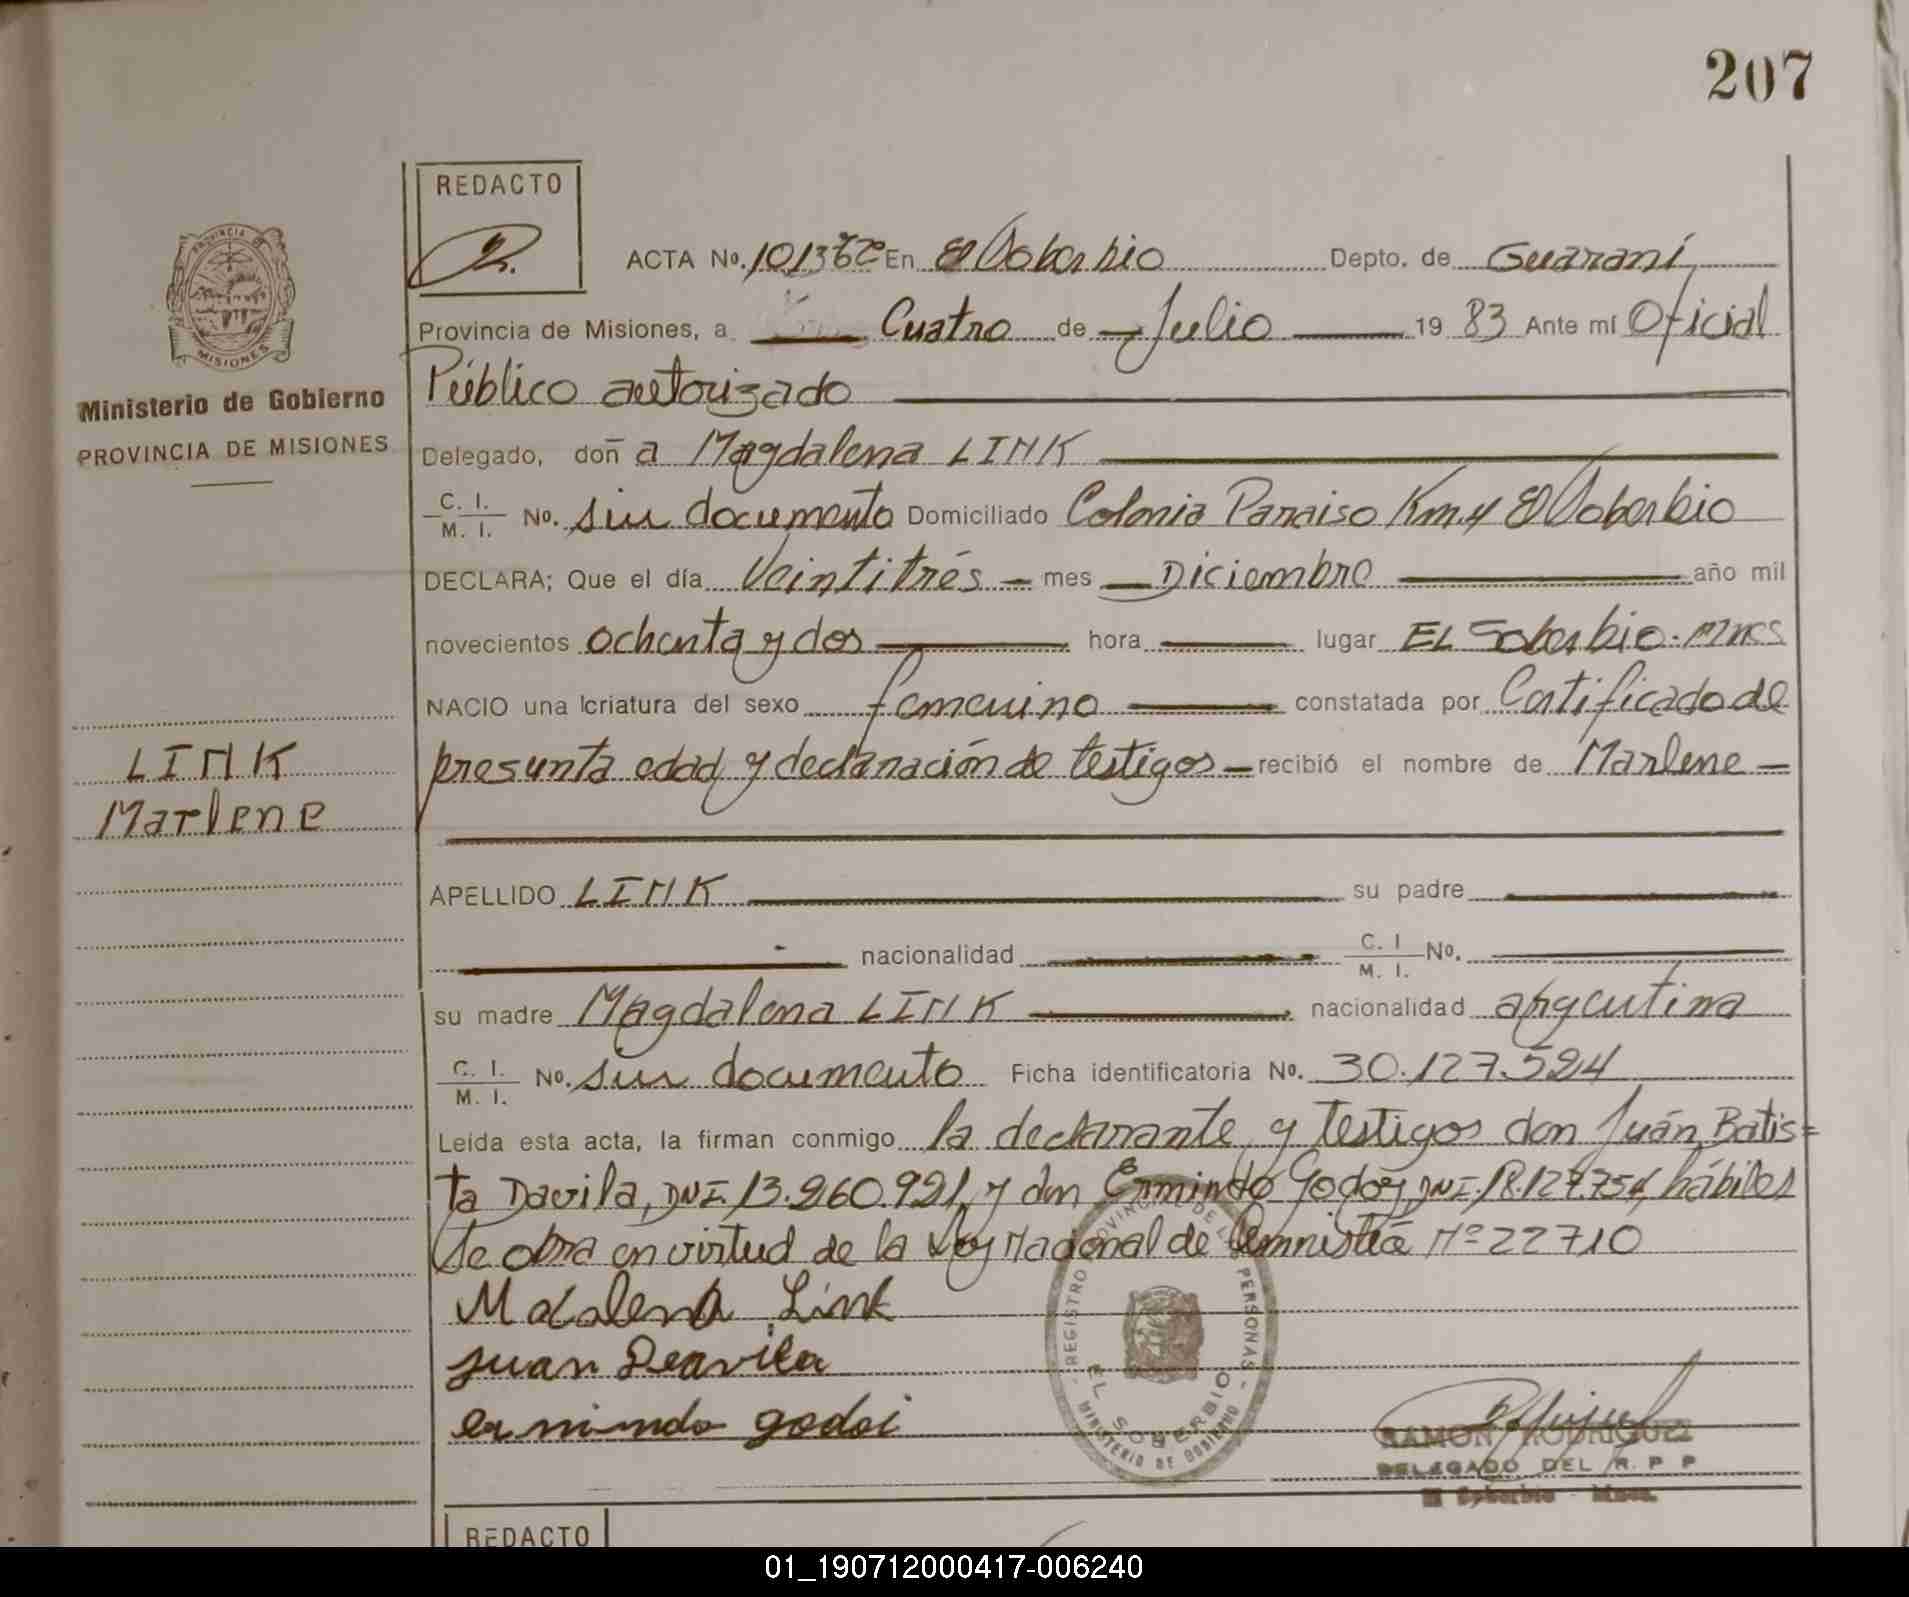 207
REDACTO
PROVINCIA DE
MISIONES
Ministerio de Gobierno
PROVINCIA DE MISIONES
ACTA No. En El Soberbio Depto. de Guaraní
Provincia de Misiones, a Cuatro de Julio 19 83 Ante mí Oficial
Público autorizado
Delegado, doña Magdalena LINK
C. I.
M. I. No. sin documento Domiciliado Colonia Paraiso Km.4 El Soberbio
DECLARA; Que el día Veintitrés mes Diciembre año mil
novecientos ochenta y dos hora lugar EL Soberbio. Mnes
NACIO una criatura del sexo femenino constatada por Certificado de
presunta edad y declaración de testigos recibió el nombre de Marlene
LINK
Marlene
APELLIDO LINK su padre
nacionalidad C. I
M. I. No.
su madre Magdalena LINK nacionalidad argentina
C. I.
M. I. No. sin documento Ficha identificatoria No. 30.127.524
Leída esta acta, la firman conmigo la declarante y testigos don Juán Batis=
ta Davila, DNI. 13.260.921, y don Ermindo Godoy, DNI. 18.127.754, hábiles
Se obra en virtud de la Ley Nacional de Amnistía Nº 22710
Madalena Link
Juan Deavila
ermindo godoi
REGISTRO PROVINCIAL DE L PERSONAS
EL SOBERBIO
MINISTERIO DE GOBIERNO
RAMON RODRIGUEZ
DELEGADO DEL R. P P
El Soberbio - Mnes.
REDACTO
01_190712000417-006240